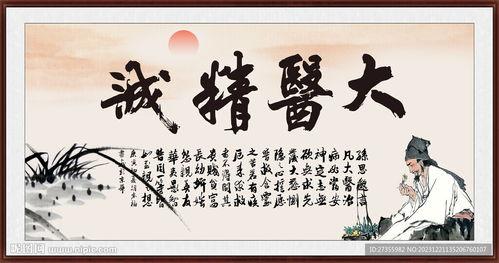 大醫精誠
孫思邈言
凡大醫治
病必當安
神定志無
欲無求先
發大慈惻
隱之心誓願
普救含靈
之苦若有疾
厄來求救
者不得問其
貴賤貧富
長幼妍媸
怨親善友
華夷愚智
普同一等皆
如至親之想
昵图网
www.nipic.com
ID:27355982 NO:20231221135206760107